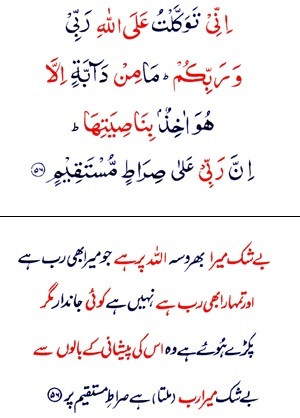 اِنِّیْ تَوَکَّلْتُ عَلَی اللّٰهِ رَبِّیْ
وَ رَبِّکُمْ ؕ مَا مِنْ دَآبَّةٍ اِلَّا
هُوَ اٰخِذٌۢ بِنَاصِیَتِهَا ؕ
اِنَّ رَبِّیْ عَلٰی صِرَاطٍ مُّسْتَقِیْمٍ ﴿۵۶﴾
بے شک میرا بھروسہ اللہ پر ہے جو میرا بھی رب ہے
اور تمہارا بھی رب ہے نہیں ہے کوئی جاندار مگر
پکڑے ہوئے ہے وہ اس کی پیشانی کے بالوں سے
بے شک میرا رب (ملتا) ہے صراطِ مستقیم پر ﴿۵۶﴾